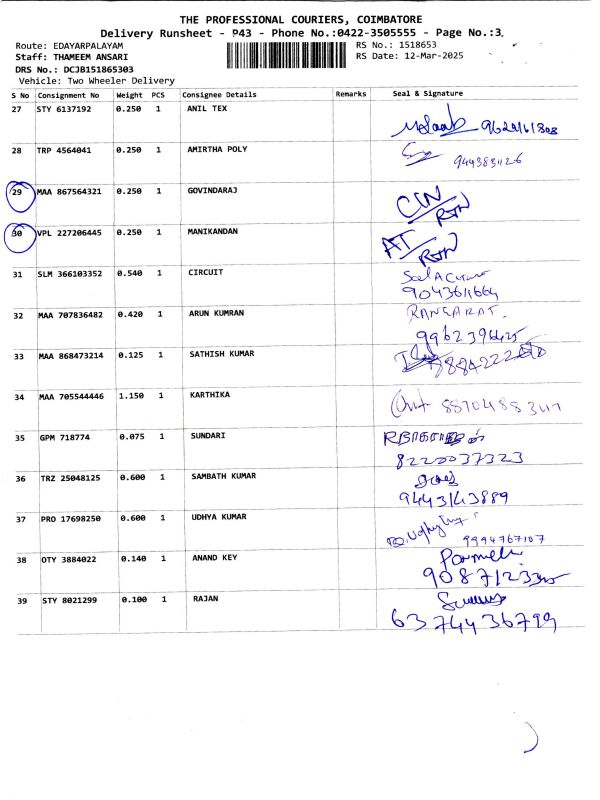 THE PROFESSIONAL COURIERS, COIMBATORE
Delivery Runsheet - P43 - Phone No.:0422-3505555 - Page No.:3
Route: EDAYARPALAYAM RS No.: 1518653
Staff: THAMEEM ANSARI RS Date: 12-Mar-2025
DRS No.: DCJB151865303
Vehicle: Two Wheeler Delivery
S No Consignment No Weight PCS Consignee Details Remarks Seal & Signature
27 STY 6137192 0.250 1 ANIL TEX
28 TRP 4564041 0.250 1 AMIRTHA POLY
29 MAA 867564321 0.250 1 GOVINDARAJ CIN/RTN
30 VPL 227206445 0.250 1 MANIKANDAN AT/RTN
31 SLM 366103352 0.540 1 CIRCUIT
9043611664
32 MAA 707836482 0.420 1 ARUN KUMRAN
33 MAA 868473214 0.125 1 SATHISH KUMAR
34 MAA 705544446 1.150 1 KARTHIKA
35 GPM 718774 0.075 1 SUNDARI
8220037323
36 TRZ 25048125 0.600 1 SAMBATH KUMAR
9443143889
37 PRO 17698250 0.600 1 UDHYA KUMAR
9994767107
38 OTY 3884022 0.140 1 ANAND KEY
39 STY 8021299 0.100 1 RAJAN
6374436799